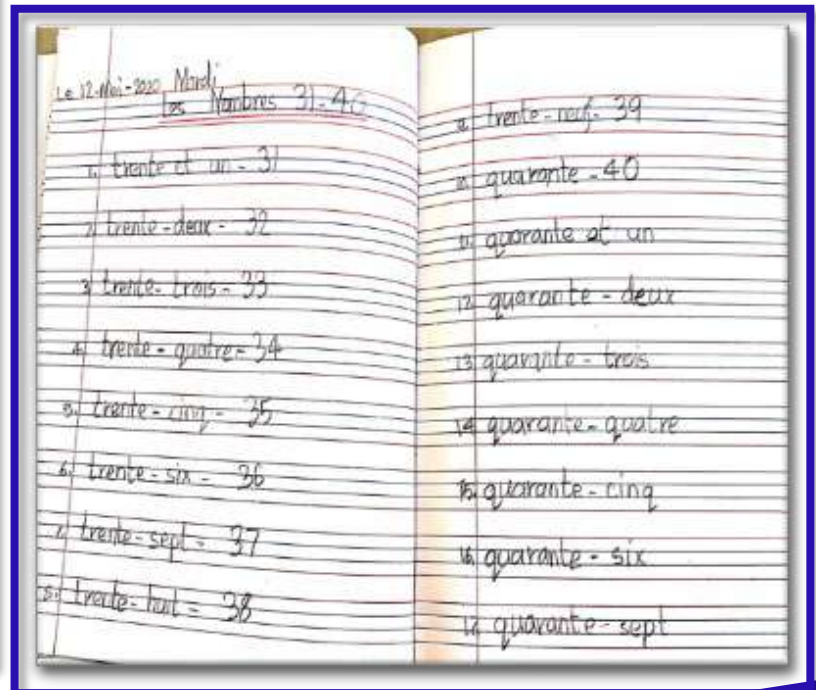 Le 12-Mai-2020 Mardi
Les Nombres 31-40
1. trente et un - 31
2. trente-deux - 32
3. trente-trois - 33
4. trente-quatre - 34
5. trente-cinq - 35
6. trente-six - 36
7. trente-sept - 37
8. trente-huit - 38
9. trente-neuf- 39
10. quarante - 40
11. quarante et un
12. quarante - deux
13. quarante - trois
14. quarante - quatre
15. quarante - cinq
16. quarante - six
17. quarante - sept